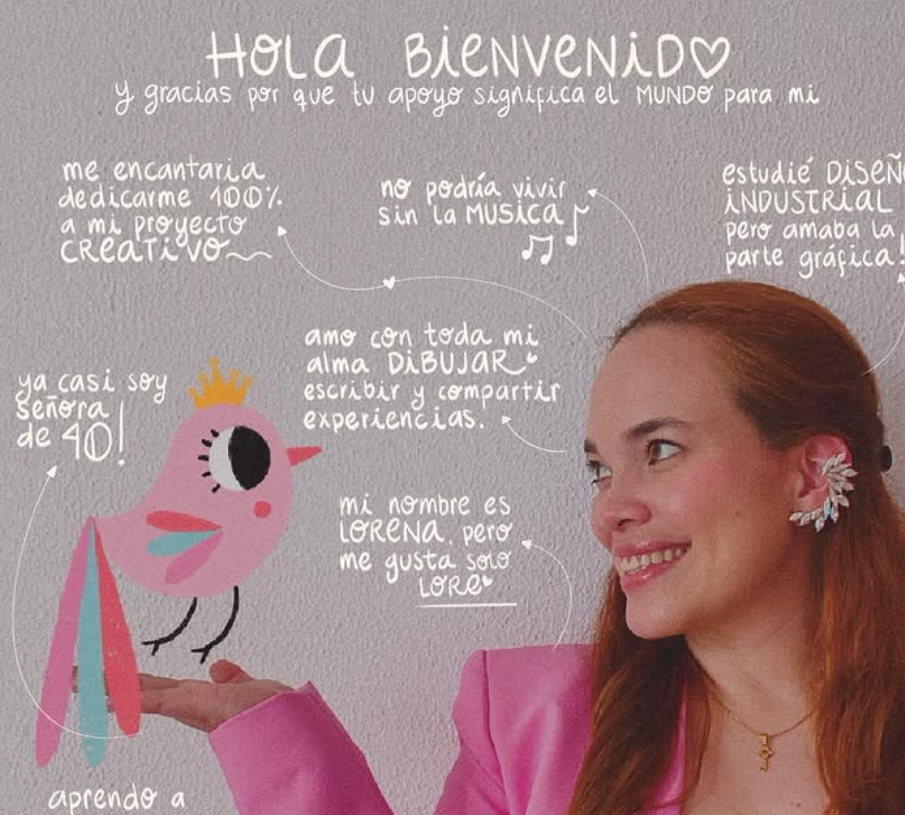 HOLA BiENVENiDO
y gracias por que tu apoyo significa el MUNDO para mi
me encantaria
dedicarme 100%
a mi proyecto
CREATiVO
no podría vivir
sin la MUSiCA
estudié DiSEÑ
iNDUSTRiAL
pero amaba la
parte gráfica!
amo con toda mi
alma DiBUJAR
escribir y compartir
experiencias.
ya casi soy
señora
de 40!
mi nombre es
LORENA, pero
me gusta solo
LORE
aprendo a